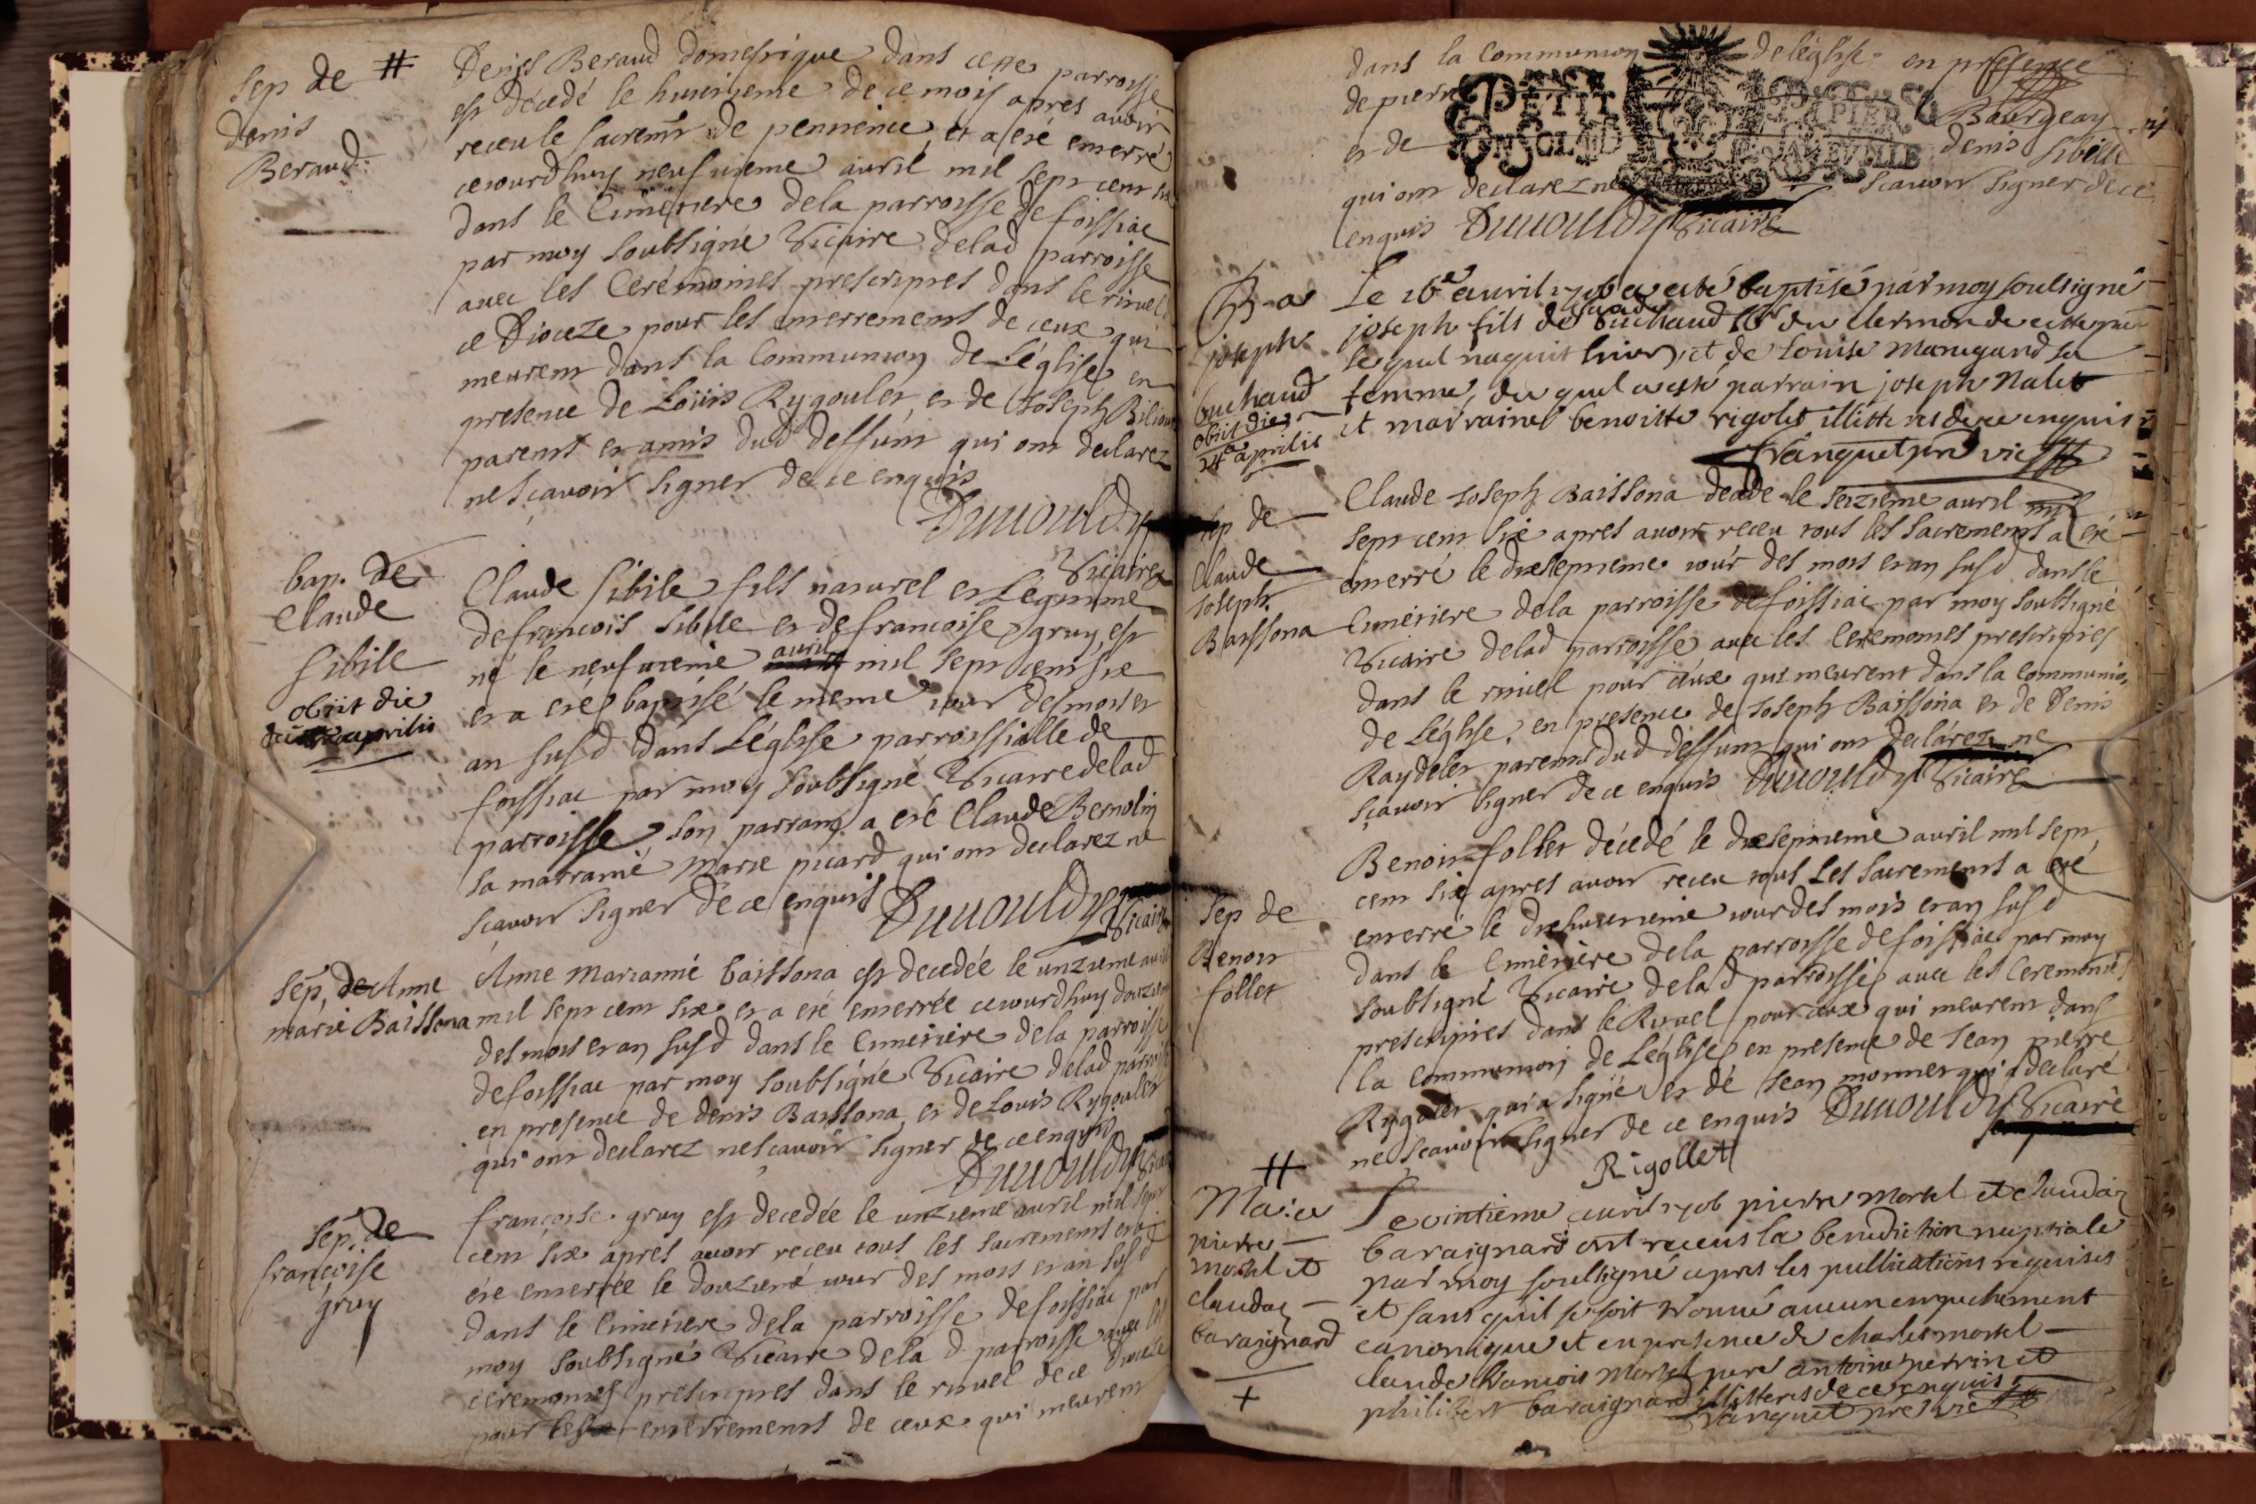 Sep de #
denis
Beraud.
Denis Beraud domestique dans cette parroisse
est décédé le huitieme de ce mois apres avoir
receu le sacremt de penitence et a eté enterré
cejourdhuy neufvieme avril mil sept cent six
dans le Cimetiere dela parroisse de foissiac
par moy soubsigné Vicaire delad parroisse
avec les Ceremonies prescriptes dans le rituel
ce Dioceze pour les enterrements de ceux qui
meurent dans la Communion de Léglise en
presence de Loüis Rygoulet et de Joseph
parents et amis dud deffunt qui ont declarez
ne sçavoir signer de ce enquis
Duuouldy
Vicaire
bap. de
Claude
Sibile
obiit die
aprilis
Claude Sibile fils naturel et Legitime
de françois Sibile et de francoise gruy est
né le neufvieme avril mil sept cent six
et a eté baptisé le meme jour des mois et
an susd dans Léglise parroissialle de
foissiac par moy soubsigné Vicaire delad
parroisse son parrain a eté Claude Bernolin
sa marraine Marie picard qui ont declarez ne
sçavoir signer de ce enquis Duuouldy Vicaire
Sep, de Anne
marie Baissona
Anne Marianné baissona est decedée le unzieme avril
mil sept cent six et a eté enterrée cejourdhuy douzieme
des mois et an susd dans le Cimetiere dela parroisse
de foissiac par moy soubsigné Vicaire delad parroisse
en presence de denis Baissona et de Louis Rygoulet
qui ont declarez ne sçavoir signer de ce enquis
Duuouldy Vicaire
Sep. de
françoise
gruy
françoise gruy est decedée le unzieme avril mil sept
cent six apres avoir receu tous les sacrements et a
eté enterrée le douzieme jour des mois et an susd
dans le Cimetiere dela parroisse de foissiac par
moy soubsigné Vicaire dela d parroisse avec les
ceremonies prescriptes dans le rituel de ce Dioceze
pour les enterrements de ceux qui meurent
dans la Communion de léglise en presence
de pierre Bourgeay
et de denis Sibille
PETIT PAPIER
UN SOL LA FEUILLE
qui ont declarez ne scavoir signer de ce
enquis Duuouldy Vicaire
joseph
buchaud
obiit die
24a aprilis
Le 16e avril 1706 a esté baptisé par moy soussigné
joseph fils de claude buchaud du clermon de cette
lequel naquit hier, et de Louise Maregand sa
femme, du quel a esté parrain joseph Nalet
et marraine benoiste rigolet illitteres de ce enquis
franquet pre vic
sep de
Claude
Joseph
Baissona
Claude Joseph Baissona decede le seizieme avril mil
sept cent six apres avoir receu tous les sacrements a eté
enterré le dixseptieme jour des mois et an susd dans le
Cimetiere dela parroisse de foissiac par moy soubsigné
Vicaire delad parroisse avec les Ceremonies prescriptes
dans le rituel pour ceux qui meurent dans la Communion
de Léglise, en presence de Joseph Baissona et de Denis
Raydelet parents dud deffunt qui ont declarez ne
sçavoir signer de ce enquis Duuouldy Vicaire
Sep de
Benoit
follet
Benoit follet décedé le dixseptieme avril mil sept
cent six apres avoir receu tous Les sacrements a eté
enterré le dixhuitieme jour des mois et an susd
dans le Cimetiere dela parroisse de foissiac par moy
soubsigné Vicaire delad parroisse avec les Ceremonies
prescriptes dans le Rituel pour ceux qui meurent dans
la Communion de Léglise, en presence de Jean pierre
Rygolet qui a signé et de Jean monnet qui a declaré
ne Sçavoir signer de ce enquis Duuouldy Vicaire
Rigollet
#
pierre
Morel et
claudaz
baraignard
+
Le vintieme avril 1706 pierre Morel et claudaz
baraignard ont receus la benediction nuptiale
par moy soussigné apres les publications requises
et sans quil se soit trouvé aucun empechement
canonique et en presence de charles morel
claude francois Morel pere antoine perrin et
philibert baraignard illitteres de ce enquis
franquet pre vic